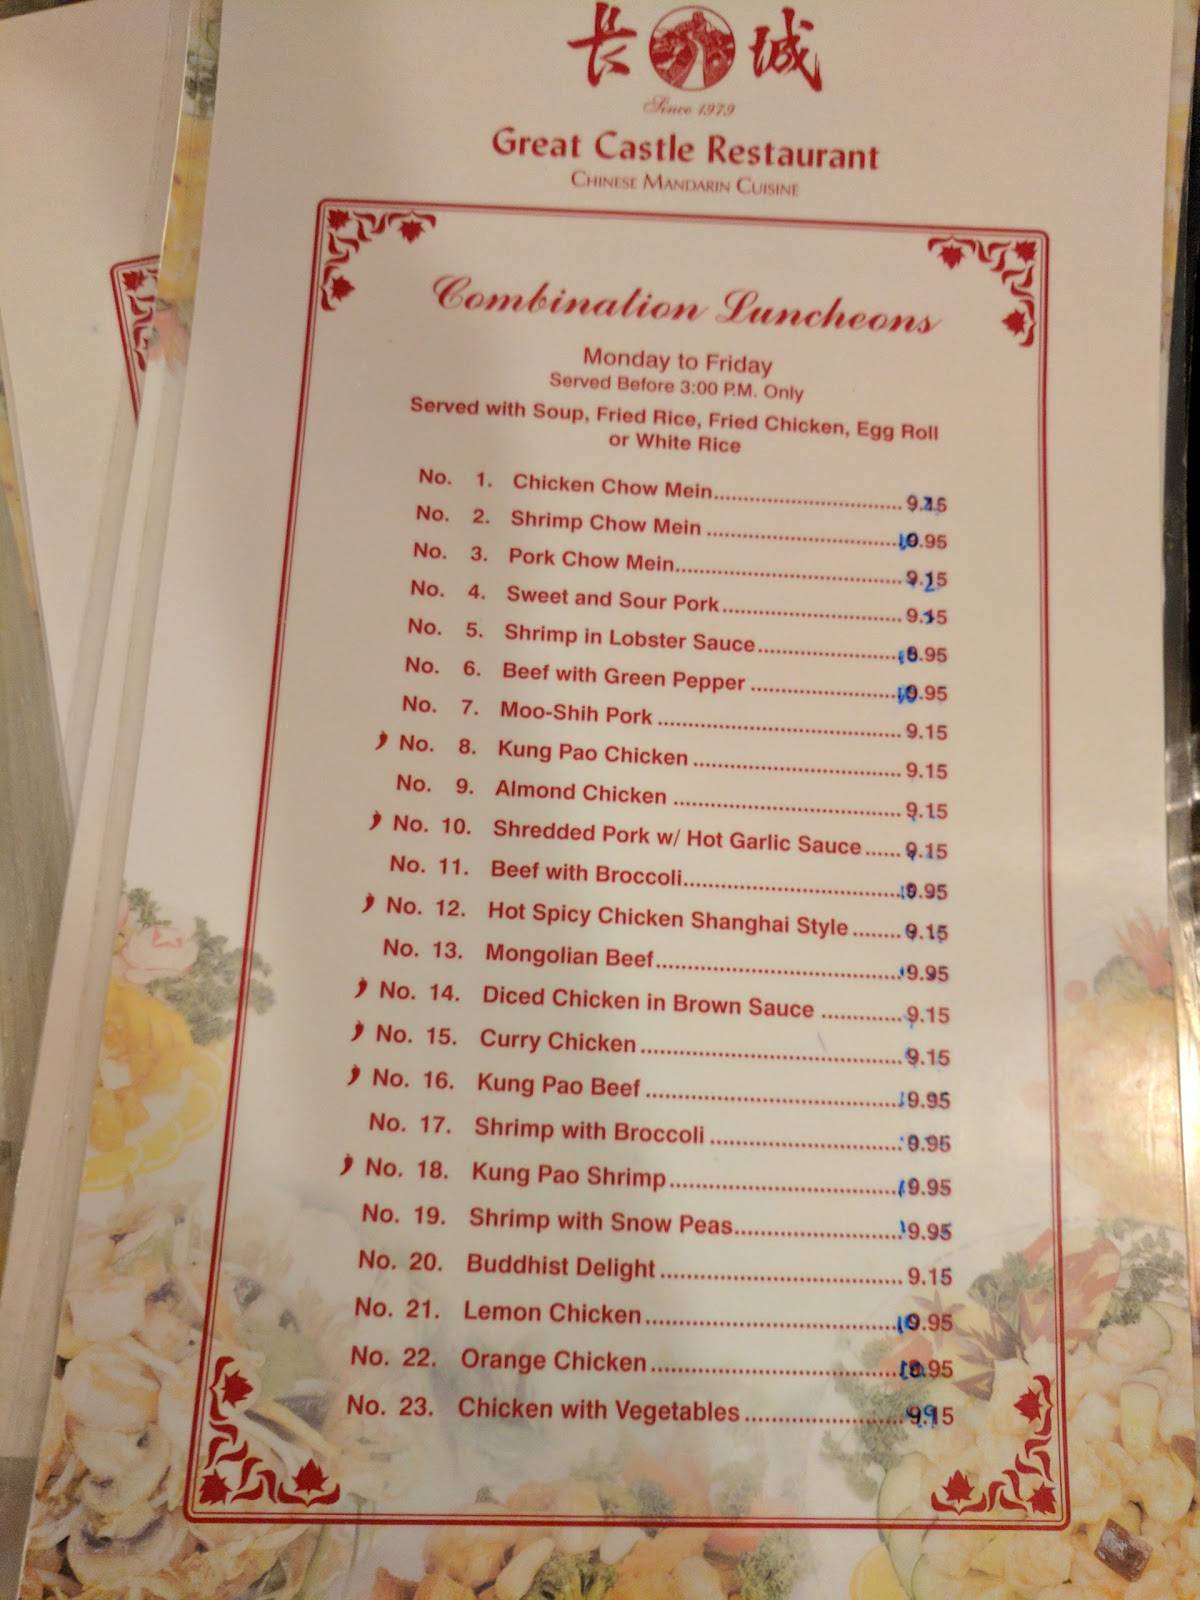 长城
Since 1979
Great Castle Restaurant
CHINESE MANDARIN CUISINE
Combination Luncheons
Monday to Friday
Served Before 3:00 P.M. Only
Served with Soup, Fried Rice, Fried Chicken, Egg Roll
or White Rice
No. 1. Chicken Chow Mein
No. 2. Shrimp Chow Mein 10.95
No. 3. Pork Chow Mein
No. 4. Sweet and Sour Pork
No. 5. Shrimp in Lobster Sauce
No. 6. Beef with Green Pepper 10.95
No. 7. Moo-Shih Pork 9.15
No. 8. Kung Pao Chicken 9.15
No. 9. Almond Chicken 9.15
No. 10. Shredded Pork w/ Hot Garlic Sauce 9.15
No. 11. Beef with Broccoli
No. 12. Hot Spicy Chicken Shanghai Style 9.15
No. 13. Mongolian Beef
No. 14. Diced Chicken in Brown Sauce 9.15
No. 15. Curry Chicken 9.15
No. 16. Kung Pao Beef
No. 17. Shrimp with Broccoli
No. 18. Kung Pao Shrimp
No. 19. Shrimp with Snow Peas
No. 20. Buddhist Delight 9.15
No. 21. Lemon Chicken 10.95
No. 22. Orange Chicken 10.95
No. 23. Chicken with Vegetables